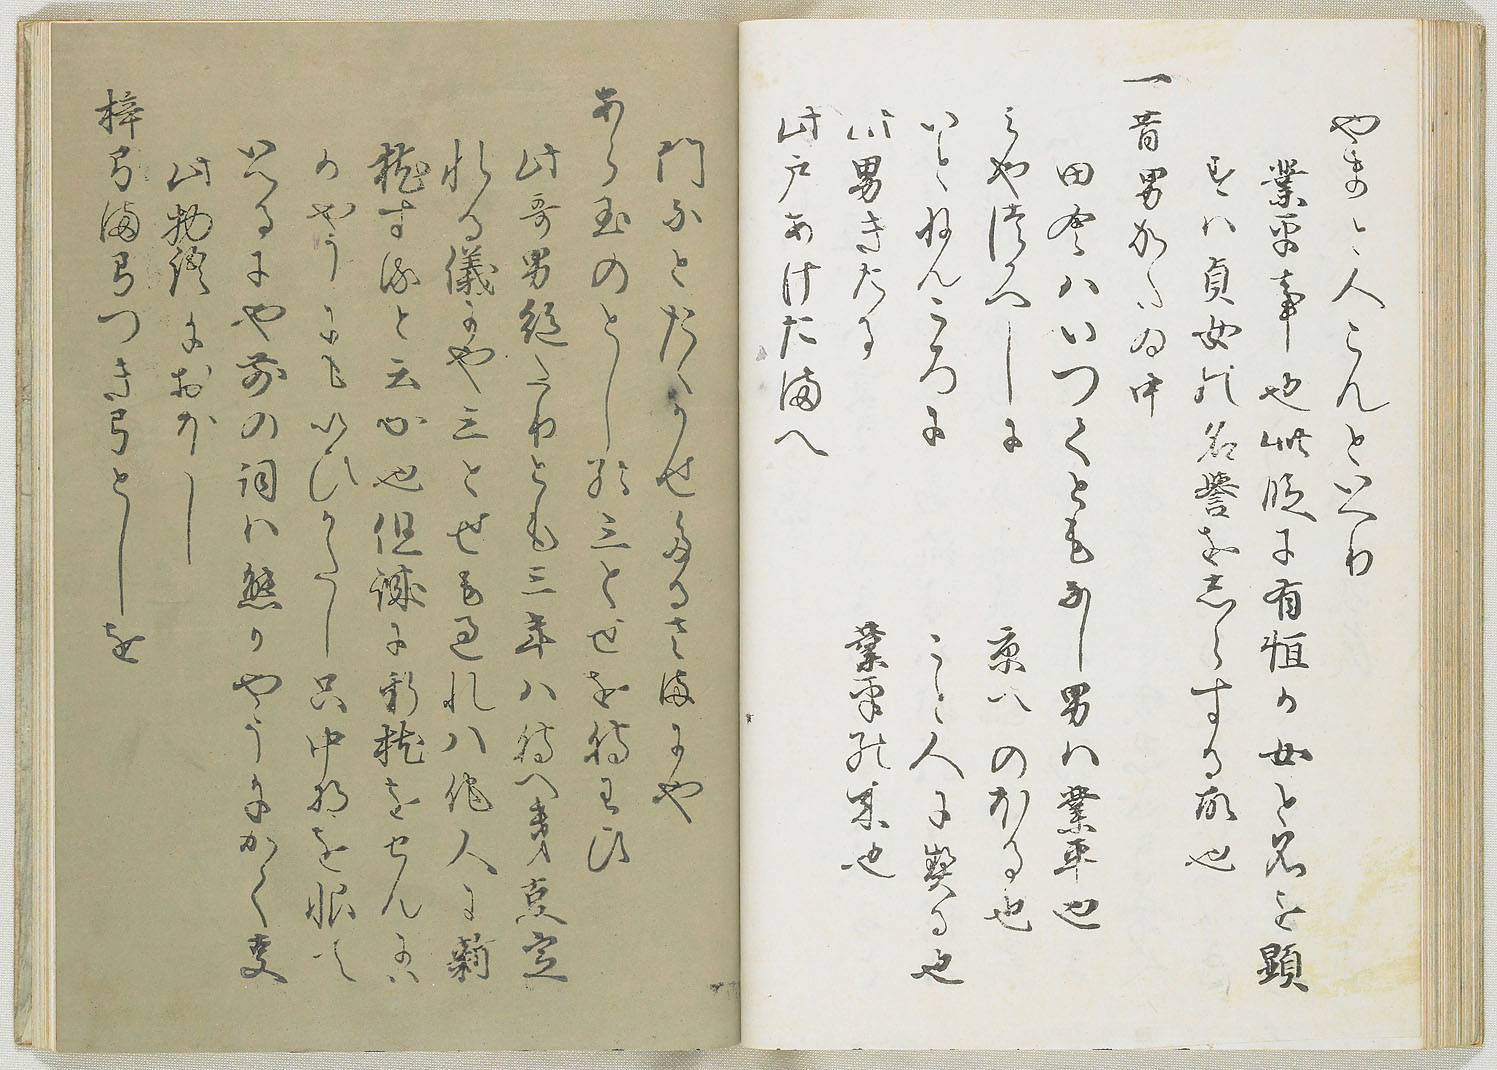 やまと人こんといへり
業平事也此段に有恒か女と名を顕
すは貞女の名誉をしらする故也
一昔男かたゐ中
田舎はいつくともなし男は業平也
みやつかへしに
京へのほる也
いとねんころに
こと人に契る也
此男きたる
業平の来也
此戸あけたまへ
門なとたゝかせたるさまにや
あら玉のとしの三とせを待わひ
此哥男絶たりとも三年は待へき夏定
れる儀にや三とせも過れは他人に新
枕すると云心也但誠に新枕をせんには
かやうにもいひかたし只中将を恨て
いへるにや前の詞は態かやうにかく事
此物語におほし
梓弓ま弓つき弓としを